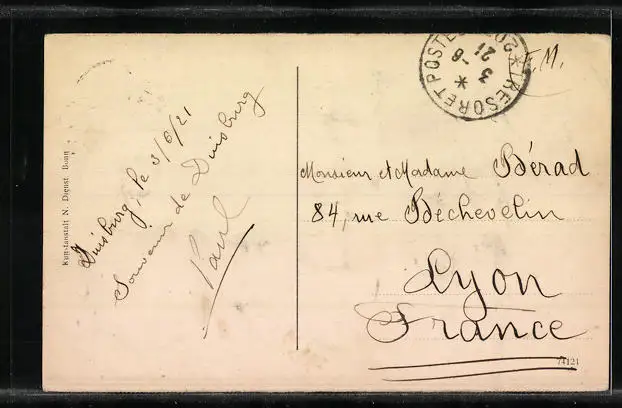 TRESOR ET POSTES
* 20 *
3 - 6
21
F.M.
Duisburg, le 3/6/21
Souvenir de Duisburg
Paul
Kunstanstalt N. Dienst Bonn
Monsieur et Madame Bérad
84, rue Béchevelin
Lyon
France
74121